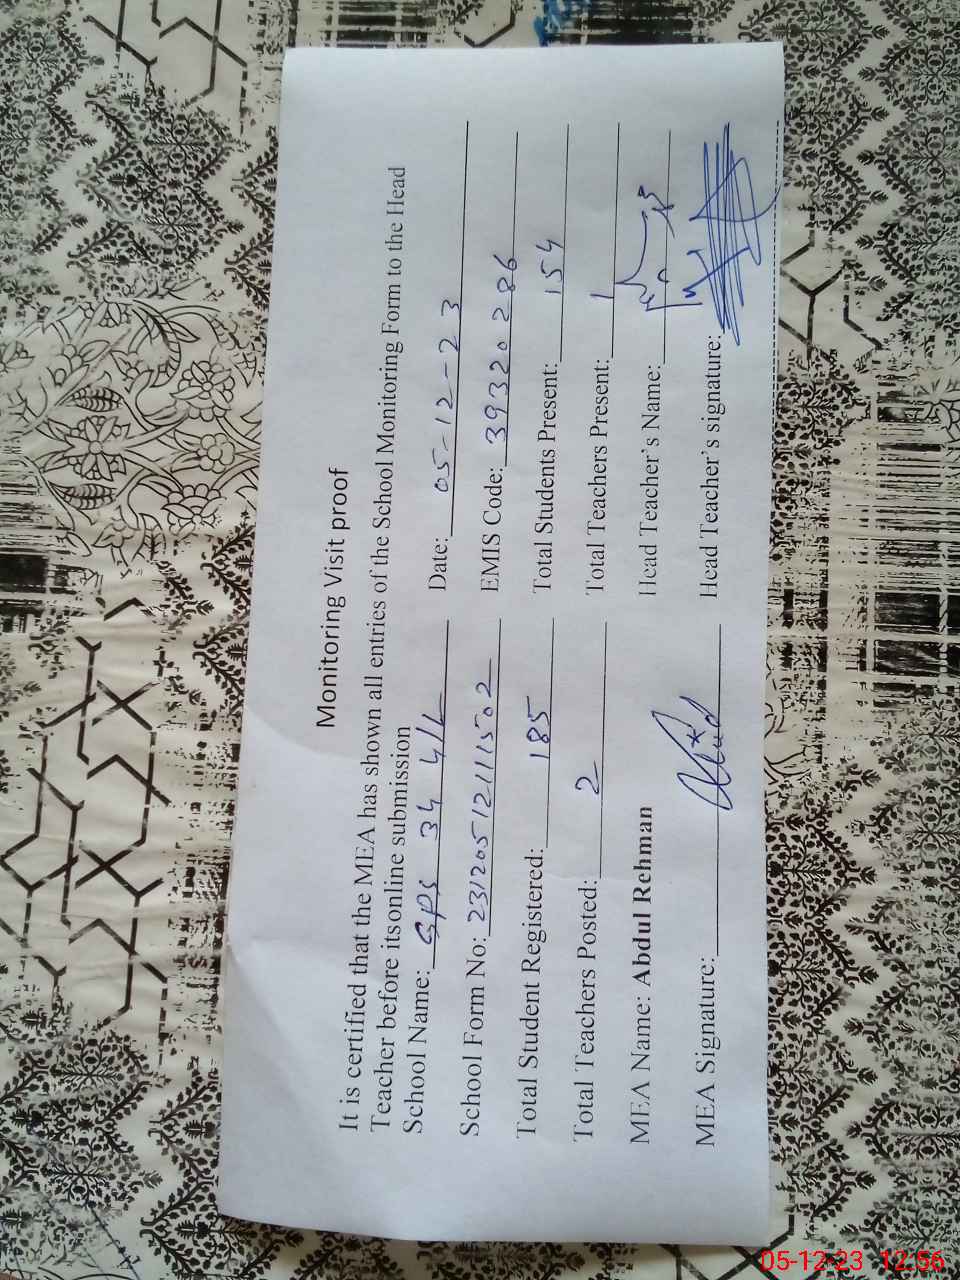 Monitoring Visit proof
It is certified that the MEA has shown all entries of the School Monitoring Form to the Head
Teacher before itsonline submission
School Name: GPS 34 4/L Date: 05-12-23
School Form No: 231205121111502 EMIS Code: 39320286
Total Student Registered: 185 Total Students Present: 154
Total Teachers Posted: 2 Total Teachers Present: 1
MEA Name: Abdul Rehman Head Teacher's Name:
MEA Signature: Head Teacher's signature:
05-12-23 12:56